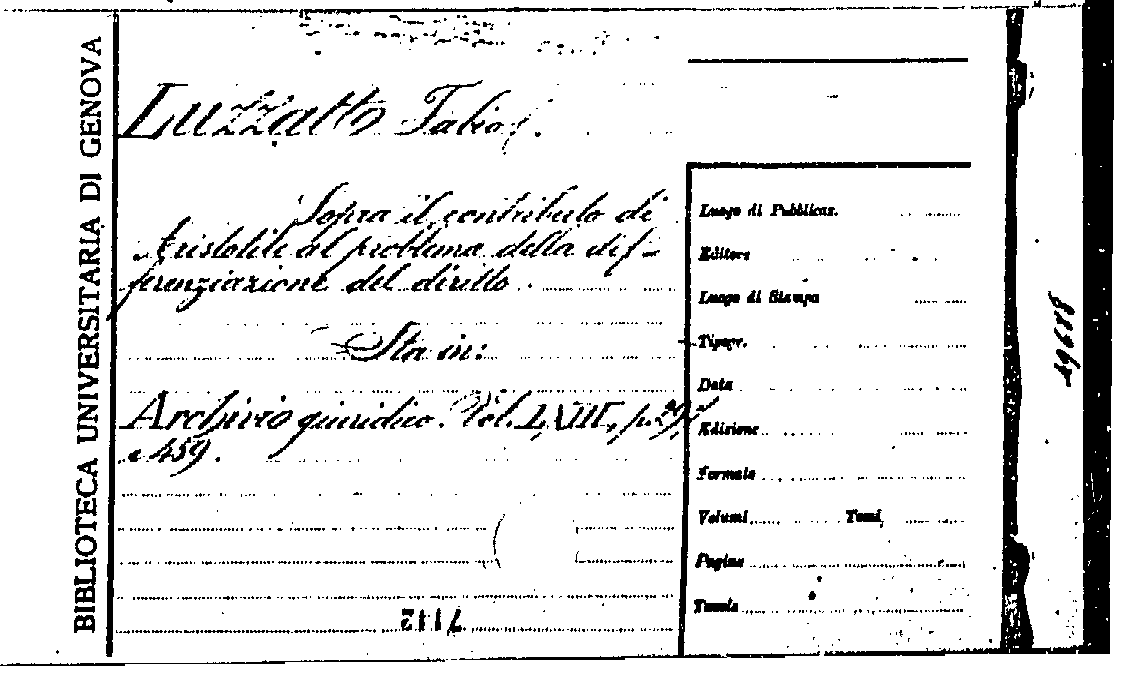 BIBLIOTECA UNIVERSITARIA DI GENOVA
Luzzatto Fabio.
Sopra il contributo di
Aristotile al problema della dif-
ferenziazione del diritto
Sta in:
Archivio giuridico. Vol. LXIII, p.
e 459.
7112
Luogo di Pubblicaz.
Editore
Luogo di Stampa
Tipogr.
Data
Edizione
Formato
Volumi Tomi
Pagine
Tavole